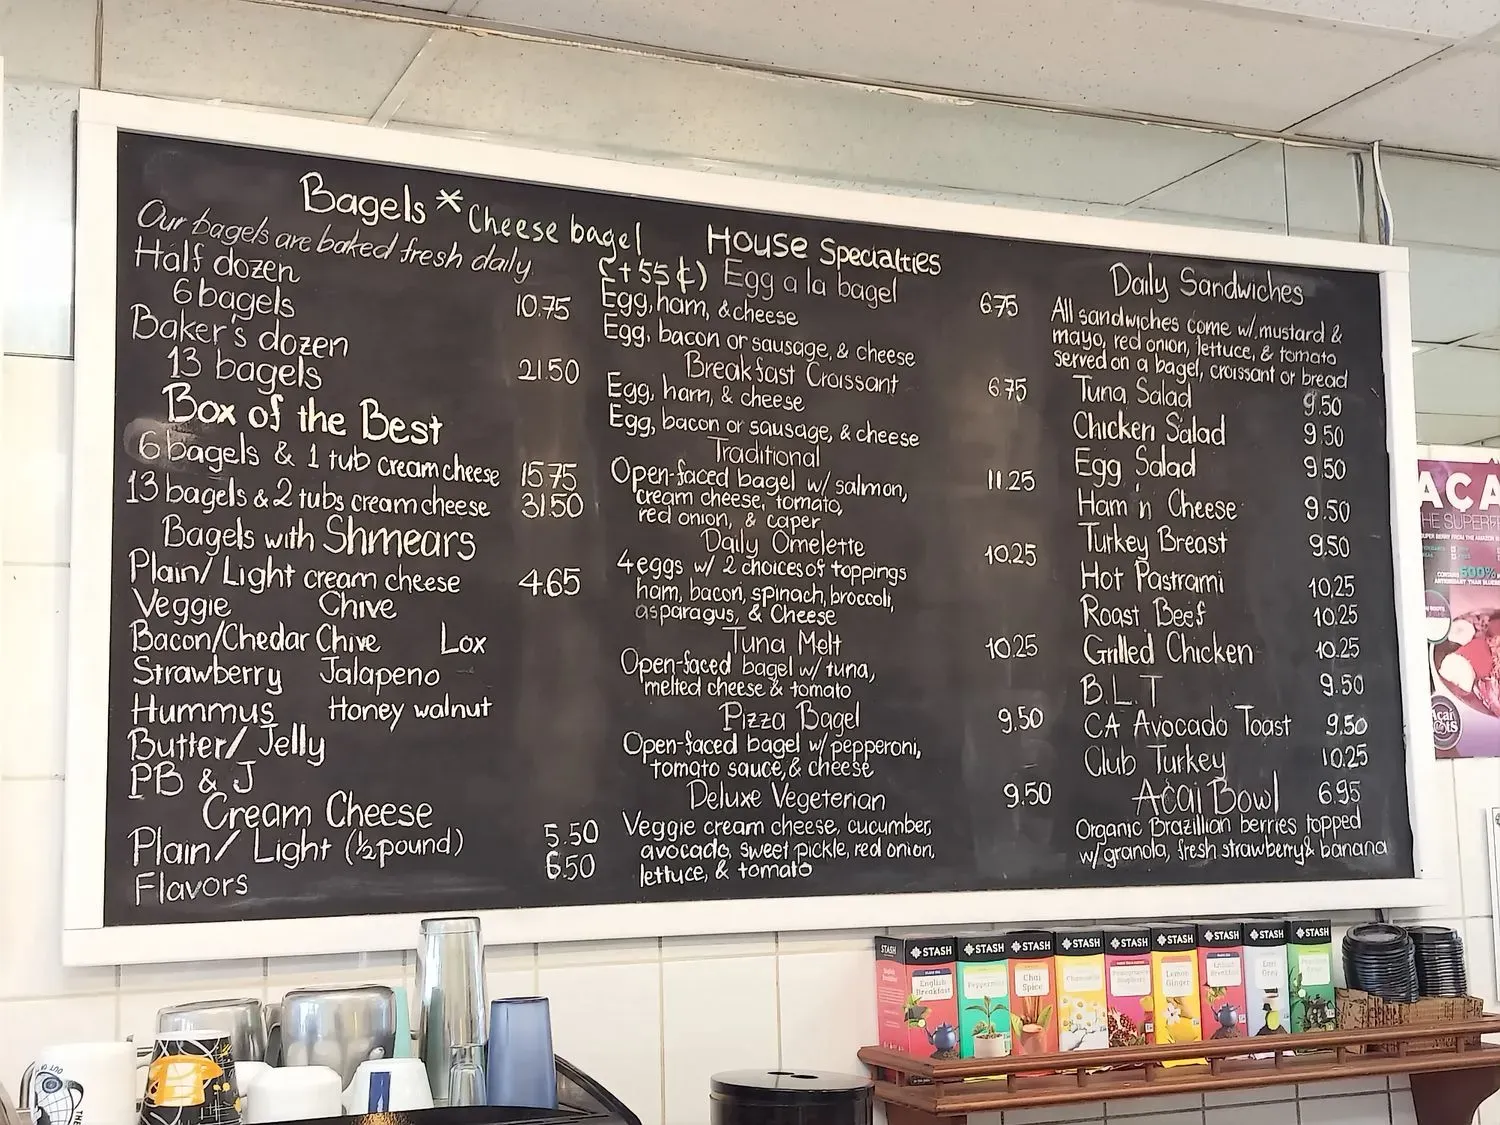 Bagels * Cheese bagel
(+55¢)
Our bagels are baked fresh daily
Half dozen
6 bagels 10.75
Baker's dozen
13 bagels 21.50
Box of the Best
6 bagels & 1 tub cream cheese 15.75
13 bagels & 2 tubs cream cheese 31.50
Bagels with Shmears
Plain/ Light cream cheese 4.65
Veggie Chive
Bacon/Chedar Chive Lox
Strawberry Jalapeno
Hummus Honey walnut
Butter/ Jelly
PB & J
Cream Cheese
Plain/ Light (½ pound) 5.50
Flavors 6.50
House Specialties
Egg a la bagel 6.75
Egg, ham, & cheese
Egg, bacon or sausage, & cheese
Breakfast Croissant 6.75
Egg, ham, & cheese
Egg, bacon or sausage, & cheese
Traditional 11.25
Open-faced bagel w/ salmon,
cream cheese, tomato,
red onion, & caper
Daily Omelette 10.25
4 eggs w/ 2 choices of toppings
ham, bacon, spinach, broccoli,
asparagus, & Cheese
Tuna Melt 10.25
Open-faced bagel w/ tuna,
melted cheese & tomato
Pizza Bagel 9.50
Open-faced bagel w/ pepperoni,
tomato sauce, & cheese
Deluxe Vegeterian 9.50
Veggie cream cheese, cucumber,
avocado, sweet pickle, red onion,
lettuce, & tomato
Daily Sandwiches
All sandwiches come w/ mustard &
mayo, red onion, lettuce, & tomato
served on a bagel, croissant or bread
Tuna Salad 9.50
Chicken Salad 9.50
Egg Salad 9.50
Ham 'n' Cheese 9.50
Turkey Breast 9.50
Hot Pastrami 10.25
Roast Beef 10.25
Grilled Chicken 10.25
B.L.T 9.50
CA Avocado Toast 9.50
Club Turkey 10.25
Açai Bowl 6.95
Organic Brazillian berries topped
w/ granola, fresh strawberry & banana
AÇA
HE SUPERF
500%
STASH STASH STASH STASH STASH STASH STASH STASH STASH
English Breakfast
Peppermint
Chai Spice
Chamomile
Lemon Ginger
English Breakfast
Earl Grey